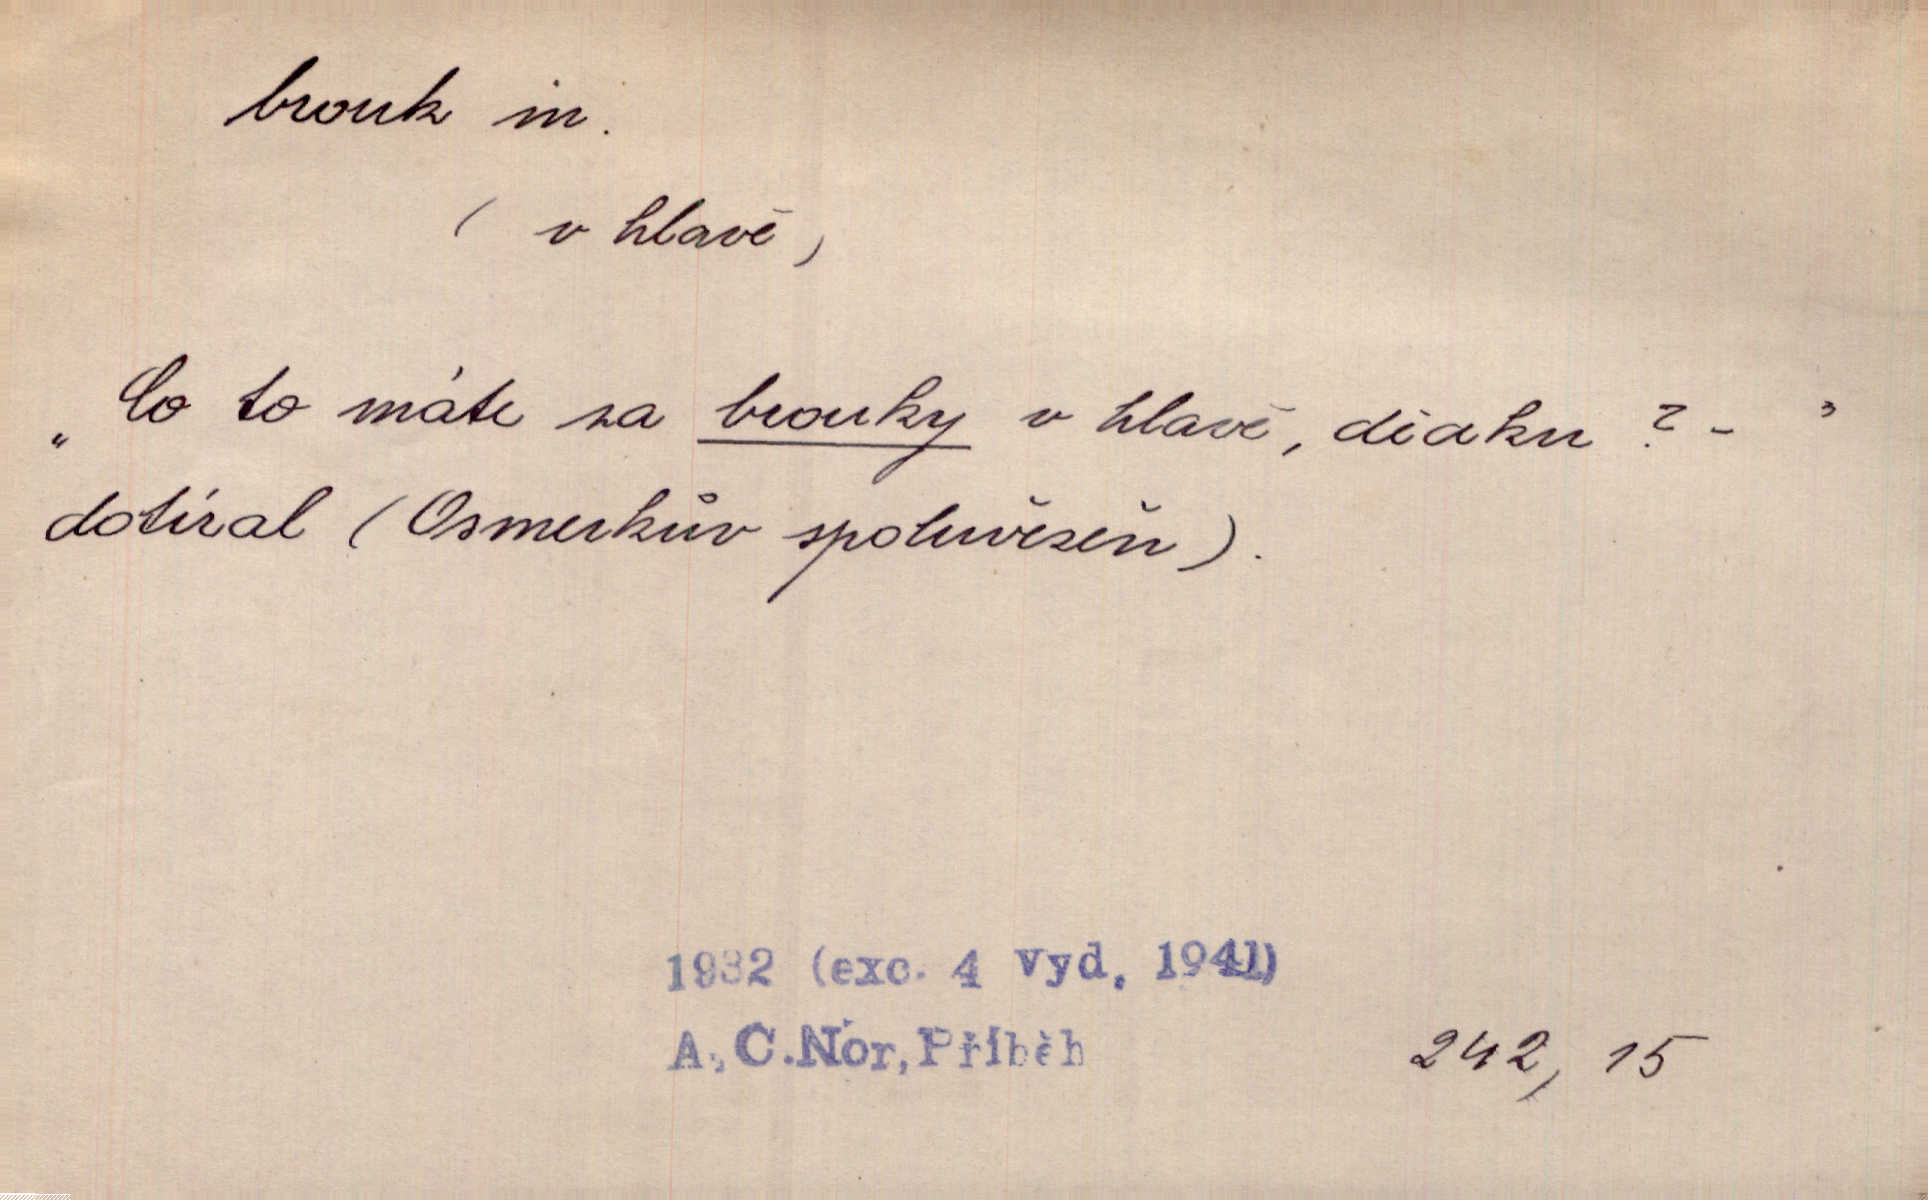 brouk m.
( v hlavě )
„Co to máte za brouky v hlavě, diaku? - "
dotíral (Osmerkův spoluvězeň).
1932 (exc. 4 Vyd. 1941)
A. C. Nor, Příběh
242, 15